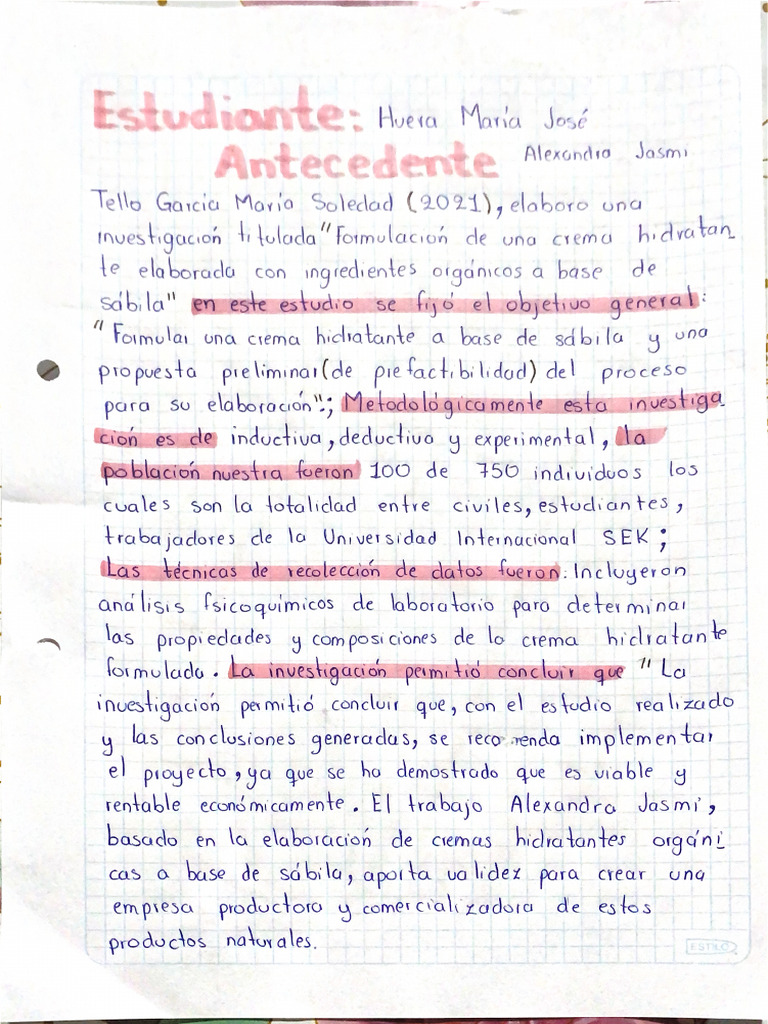 Estudiante: Huera María José
Antecedente Alexandra Jasmi
Tello Garcia María Soledad (2021), elaboro una
investigación titulada "Formulación de una crema hidratan
te elaborada con ingredientes orgánicos a base de
sábila" en este estudio se fijó el objetivo general:
"Formular una crema hidratante a base de sábila y una
propuesta preliminar (de prefactibilidad) del proceso
para su elaboración".; Metodológicamente esta investiga
ción es de inductiva, deductiva y experimental, la
población nuestra fueron 100 de 750 individuos los
cuales son la totalidad entre civiles, estudiantes,
trabajadores de la Universidad Internacional SEK;
Las técnicas de recolección de datos fueron: Incluyeron
análisis fsicoquímicos de laboratorio para determinar
las propiedades y composiciones de la crema hidratante
formulada. La investigación permitió concluir que "La
investigación permitió concluir que, con el estudio realizado
y las conclusiones generadas, se recomenda implementar
el proyecto, ya que se ha demostrado que es viable y
rentable económicamente. El trabajo Alexandra Jasmi,
basado en la elaboración de cremas hidratantes orgáni
cas a base de sábila, aporta validez para crear una
empresa productora y comercializadora de estos
productos naturales.
ESTILO